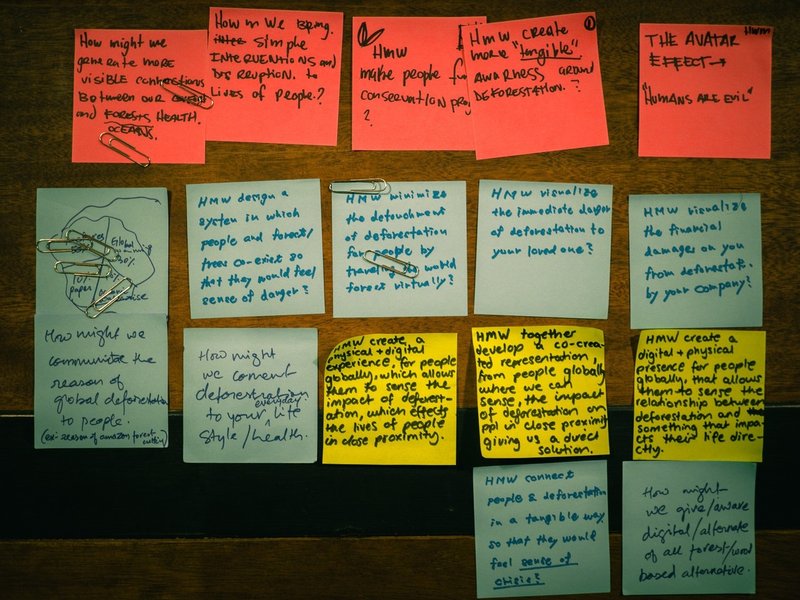 How might we
generate MORE
visible connections
Between our
and FORESTS HEALTH.
OCEANS.
How m We Bring.
Simple
INTERVENTIONS and
DISRUPTION. to
LIVES of PEOPLE?
HMW
make people
conservation
?
HMW create
more "tangible"
AWARNESS GROUND
DEFORESTATION.?
THE AVATAR
EFFECT→
"HUMANS ARE EVIL"
HMW
Global
paper
HMW design a
system in which
people and forests/
trees co-exist so
that they would feel
sense of danger?
HMW minimize
the detouchment
of deforestation
for people by
traveling world
forest virtually?
HMW visualize
the immediate danger
of deforestation to
your loved one?
HMW visualize
the financial
damages on you
from deforestati.
by your company?
How might we
communicate the
reason of
global deforestation
to people.
(ex: reason of amazon forest
cutting)
How might
we convert
deforestration
to your everyday life
style/health.
HMW create, a
physical + digital
experience, for people
globally, which allows
them to sense the
impact of deforest-
ation, which effects
the lives of people
in close proximity.
HMW together
develop a co-crea-
ted representation,
from people globally
where we can
sense, the impact
of deforestation on
ppl in close proximity
giving us a direct
solution.
HMW create a
digital + physical
presence for people
globally, that allows
them to sense the
relationship between
deforestation and
something that impa-
cts their life dire-
ctly.
HMW connect
people & deforestation
in a tangible way
so that they would
feel sense of
crisis?
How might
we give/aware
digital/alternate
of all forest/wood
based alternative.